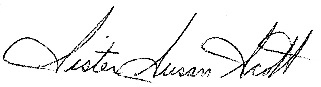 Sister Susan Scott